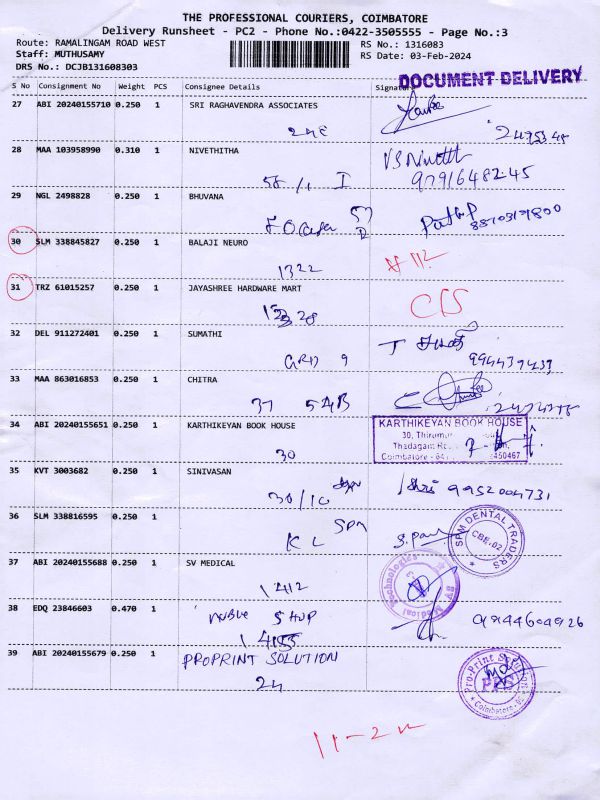 THE PROFESSIONAL COURIERS, COIMBATORE
Delivery Runsheet - PC2 - Phone No.:0422-3505555 - Page No.:3
Route: RAMALINGAM ROAD WEST RS No.: 1316083
Staff: MUTHUSAMY RS Date: 03-Feb-2024
DRS No.: DCJB131608303
DOCUMENT DELIVERY
S No Consignment No Weight PCS Consignee Details Signature
27 ABI 20240155710 0.250 1 SRI RAGHAVENDRA ASSOCIATES
28 MAA 103958990 0.310 1 NIVETHITHA
58/1 I 97916482-45
29 NGL 2498828 0.250 1 BHUVANA
30 SLM 338845827 0.250 1 BALAJI NEURO
1322
31 TRZ 61015257 0.250 1 JAYASHREE HARDWARE MART
32 DEL 911272401 0.250 1 SUMATHI
GRD 9
33 MAA 863016853 0.250 1 CHITRA
37 54B
34 ABI 20240155651 0.250 1 KARTHIKEYAN BOOK HOUSE
KARTHIKEYAN BOOK HOUSE
30, Thirumur
30 Thadagam
Coimbatore - 450467
35 KVT 3003682 0.250 1 SINIVASAN
30/10 9952004731
36 SLM 338816595 0.250 1
SPM
K L
SPM DENTAL TRADERS
CBE-02
37 ABI 20240155688 0.250 1 SV MEDICAL
1412
SV Medical Technologies
38 EDQ 23846603 0.470 1
SHUP
39 ABI 20240155679 0.250 1 PROPRINT SOLUTION
24
Pro-Print Solution
Coimbatore
11-2